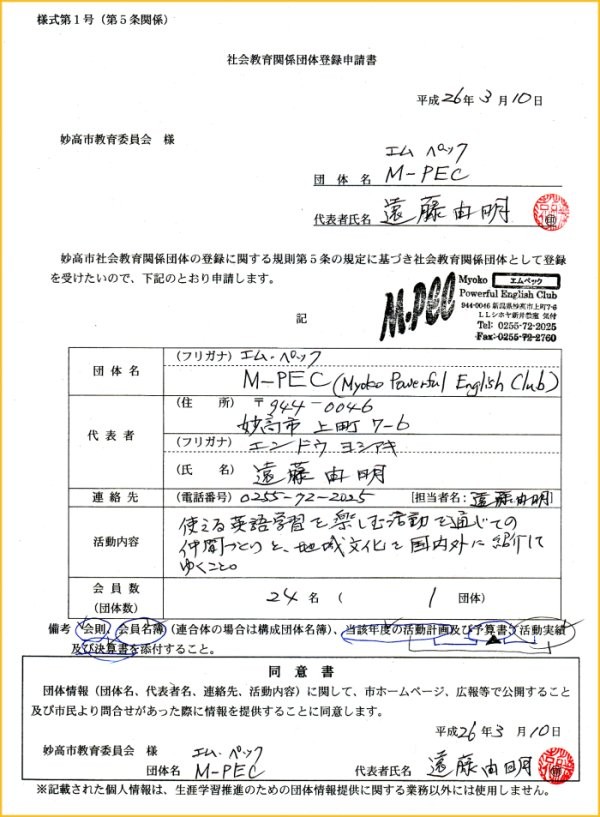 様式第１号（第５条関係）
社会教育関係団体登録申請書
平成26年3月10日
妙高市教育委員会 様
エム ペック
団 体 名 M-PEC
代表者氏名 遠藤由明
妙高市社会教育関係団体の登録に関する規則第５条の規定に基づき社会教育関係団体として登録
を受けたいので、下記のとおり申請します。
M-PEC
Myoko エムペック
Powerful English Club
944-0046 新潟県妙高市上町7-6
ＬＬシホヤ新井教室 気付
Tel: 0255-72-2025
Fax: 0255-72-2760
記
団 体 名
（フリガナ）エム・ペック
M-PEC (Myoko Powerful English Club)
代 表 者
（住 所）〒944-0046
妙高市 上町 7-6
（フリガナ）エンドウ ヨシアキ
（氏 名）遠藤由明
連 絡 先
（電話番号）0255-72-2025 [担当者名：遠藤由明]
活動内容
使える英語学習を楽しむ活動を通じての
仲間づくりと、地域文化を国内外に紹介して
ゆくこと。
会 員 数
（団体数）
24 名（ 1 団体）
備考 会則、会員名簿（連合体の場合は構成団体名簿）、当該年度の活動計画及び予算書、活動実績
及び決算書を添付すること。
同 意 書
団体情報（団体名、代表者名、連絡先、活動内容）に関して、市ホームページ、広報等で公開すること
及び市民より問合せがあった際に情報を提供することに同意します。
平成26年3月10日
妙高市教育委員会 様
エム・ペック
団体名 M-PEC 代表者氏名 遠藤由明
※記載された個人情報は、生涯学習推進のための団体情報提供に関する業務以外には使用しません。